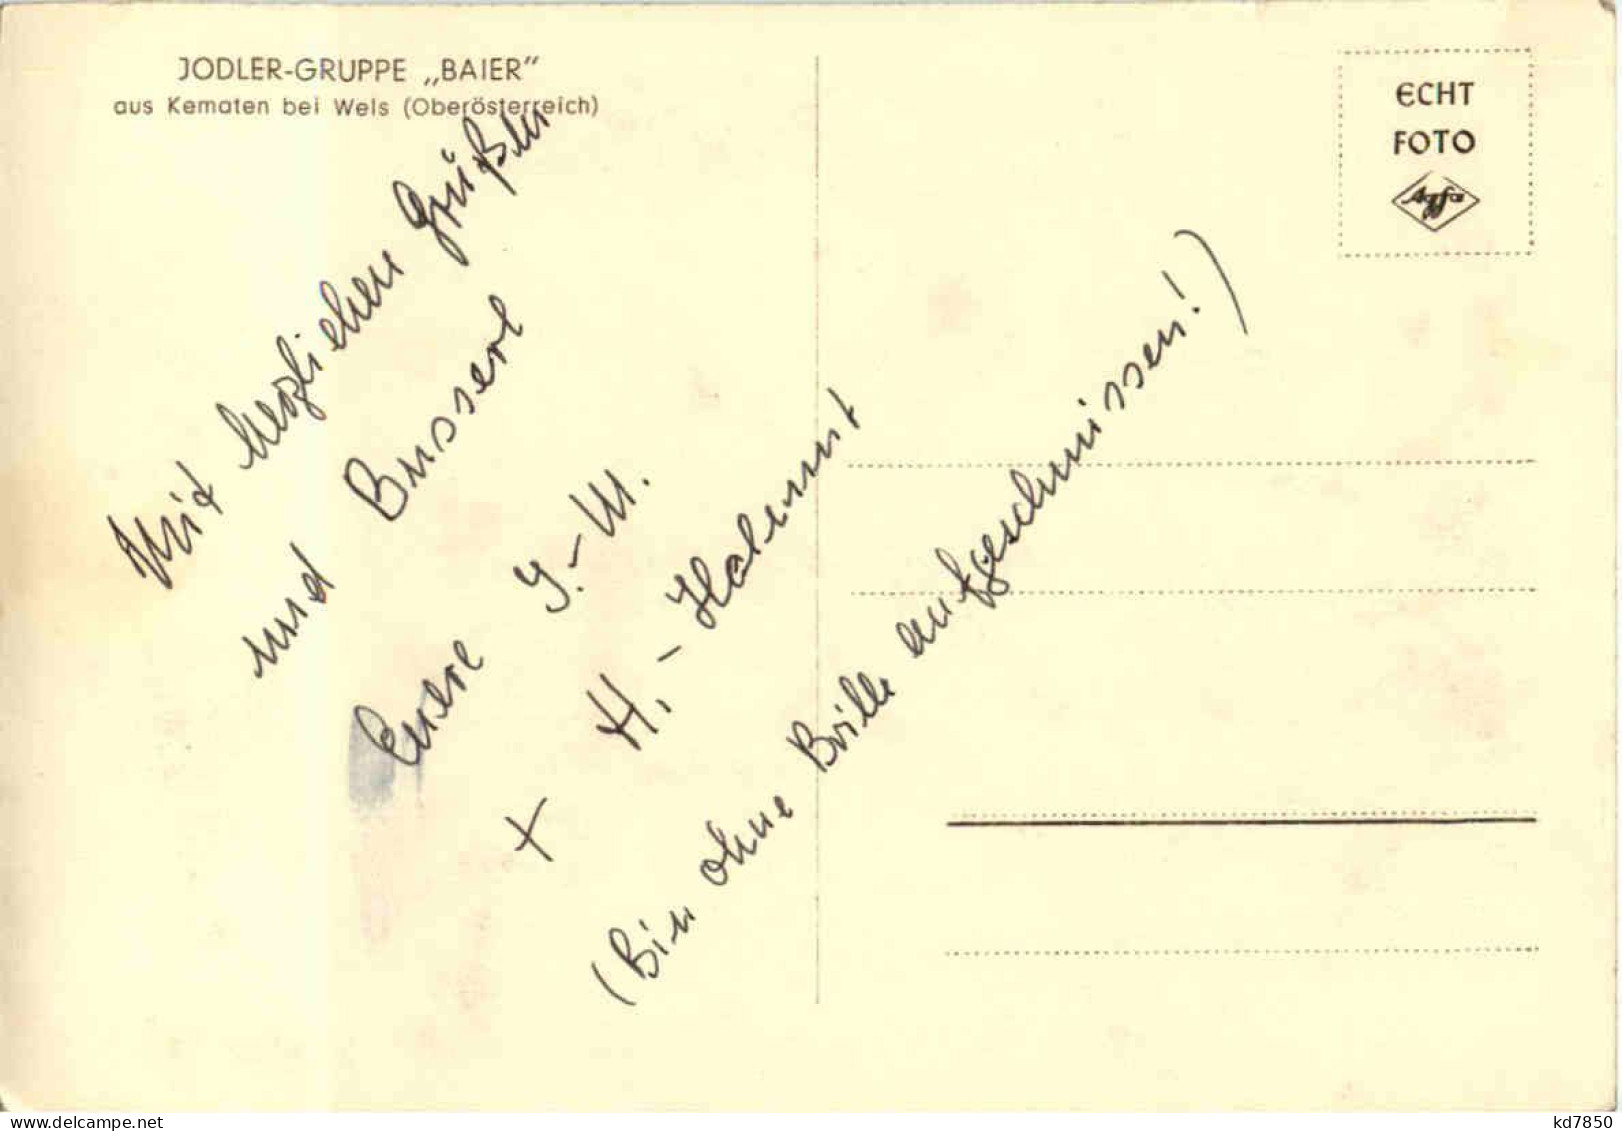 JODLER-GRUPPE „BAIER"
aus Kematen bei Wels (Oberösterreich)
ECHT
FOTO
Agfa
Mit herzlichen Grüßen
und Busserl
Euere I.-M.
+ H.-Halmut
(Bin ohne Brille aufgeschmissen!)
kd7850